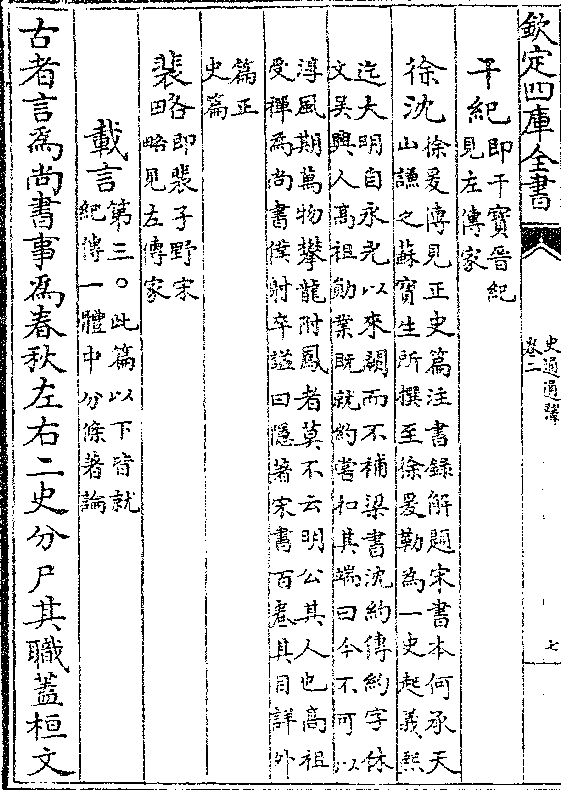 欽定四庫全書
史通通釋
卷二
七
干紀即干寶晉紀
見左傳家
徐沈徐爰傳見正史篇注書録解題宋書本何承天
山謙之蘇寶生所撰至徐爰勒為一史起義熙
迄大明自永光以來闕而不補梁書沈約傳約字休
文吳興人高祖勛業既就約嘗扣其端曰今不可以
淳風期萬物攀龍附鳳者莫不云明公其人也高祖
受禪為尚書僕射卒諡曰隱著宋書百卷其目詳外
篇正
史篇
裴略即裴子野宋
略見左傳家
載言第三○此篇以下皆就
紀傳一體中分條著論
古者言為尚書事為春秋左右二史分尸其職蓋桓文